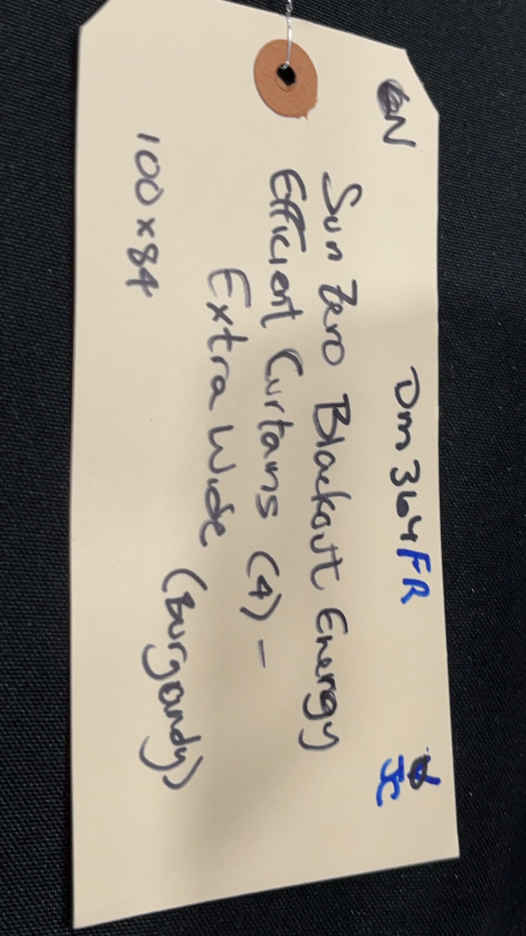 GN DM364FR JC
Sun Zero Blackout Energy
Efficient Curtains (4) -
Extra Wide (Burgandy)
100 x 84